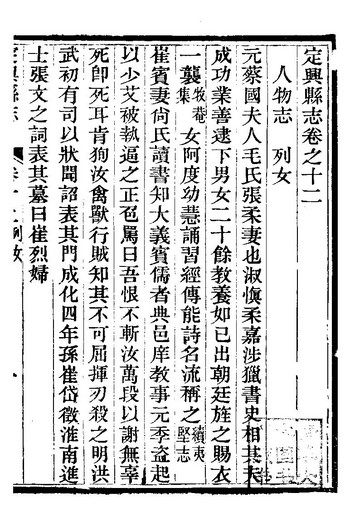 定興縣志卷之十二
人物志 列女
元蔡國夫人毛氏張柔妻也淑愼柔嘉涉獵書史相其夫
成功業善逮下男女二十餘教養如已出朝廷旌之賜衣
一襲牧菴集女阿度幼慧誦習經傳能詩名流稱之續夷堅志
崔賓妻尙氏讀書知大義賓儒者典邑庠教事元季盜起
以少艾被執逼之正色罵曰吾恨不斬汝萬段以謝無辜
死卽死耳肯狗汝禽獸行賊知其不可屈揮刃殺之明洪
武初有司以狀聞詔表其門成化四年孫崔岱徵淮南進
士張文之詞表其墓曰崔烈婦